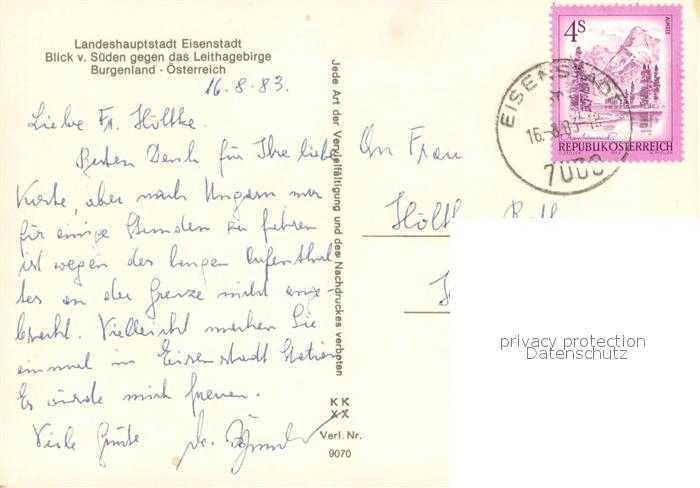 Landeshauptstadt Eisenstadt
Blick v. Süden gegen das Leithagebirge
Burgenland - Österreich
16.8.83.
Liebe Fr. Höltke.
Besten Dank für Ihre liebe
Karte, aber nach Ungarn nur
für einige Stunden zu fahren
ist wegen des langen Aufenthal-
tes an der Grenze nicht ange-
bracht. Vielleicht machen Sie
einmal in Eisenstadt Station
Es würde mich freuen.
Viele Grüße
Jede Art der Vervielfältigung und des Nachdruckes verboten
KK
XX
Verl. Nr.
9070
An Frau
4S
ALMSEE
REPUBLIK ÖSTERREICH
EISENSTADT
16.-8.83-18
7000
privacy protection
Datenschutz